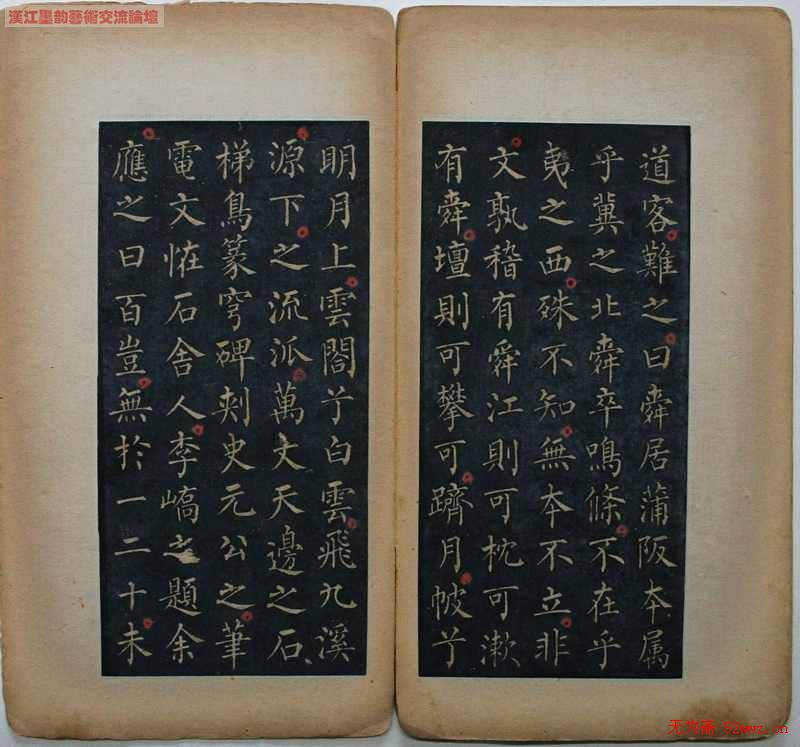 漢江墨韵藝術交流論壇
道客難之曰舜居蒲阪本属
乎冀之北舜卒鳴條不在乎
夷之西殊不知無本不立非
文孰稽有舜江則可枕可漱
有舜壇則可攀可躋月帔兮
明月上雲閣兮白雲飛九溪
源下之流派萬丈天邊之石
梯鳥篆穹碑刾史元公之筆
電文恠石舍人李嶠之題余
應之曰百豈無於一二十未
无为斋